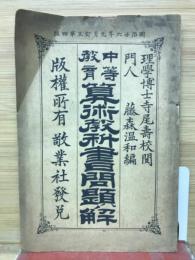 明治廿六年九月訂正第四版
理學博士寺尾壽校閲
門人 藤森温和編
中等教育 算術敎科書問題解
版權所有 敬業社發兌